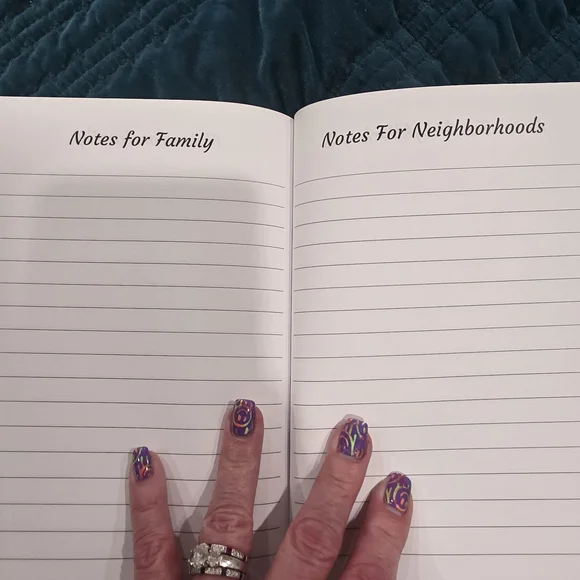 Notes for Family
Notes For Neighborhoods